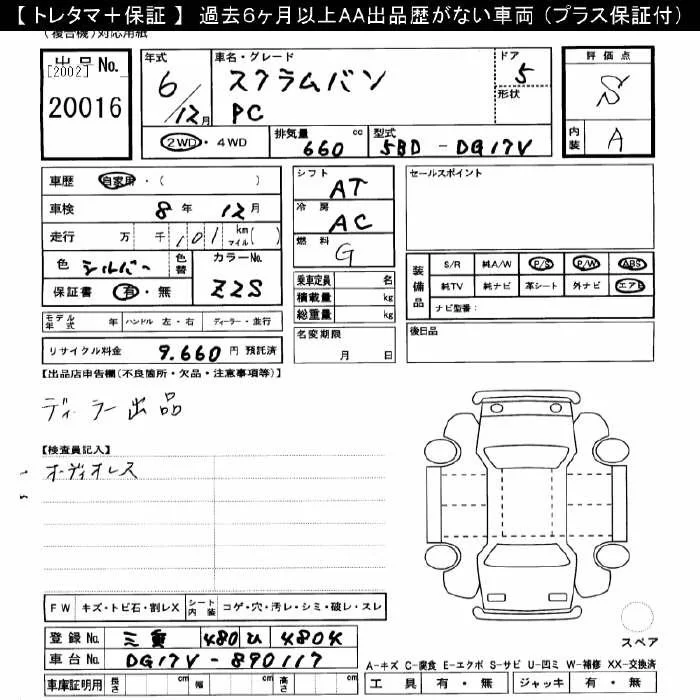 【 トレタマ＋保証 】 過去6ヶ月以上AA出品歴がない車両 (プラス保証付)
(複合機)対応用紙
出品 No.
[2002]
20016
年式
6/12月
車名・グレード
スクラムバン
PC
ドア
5
形状
評価点
S
内装
A
2WD・4WD
排気量 cc
660
型式
5BD - DG17V
車歴 自家用・( )
車検 8年 12月
走行 万 千 101 km マイル( )
色 シルバー
色替
カラーNo.
Z2S
保証書 有・無
モデル年式 年 ハンドル 左・右 ディーラー・並行
リサイクル料金 9.660 円 預託済
シフト
AT
冷房
AC
燃料
G
乗車定員 名
積載量 kg
総重量 kg
名変期限
月 日
セールスポイント
装備品
S/R 純A/W P/S P/W ABS
純TV 純ナビ 革シート 外ナビ エアB
ナビ型番：
後日品
【出品店申告欄(不良箇所・欠品・注意事項等)】
ディーラー出品
【検査員記入】
オーディオレス
FW キズ・トビ石・割レX シート内装 コゲ・穴・汚レ・シミ・破レ・スレ
登録 No. 三重 480 ひ 4804
車台 No. DG17V - 890117
車庫証明用 長さ cm 幅 cm 高さ cm
スペア
A-キズ C-腐食 E-エクボ S-サビ U-凹ミ W-補修 XX-交換済
工具 有・無 ジャッキ 有・無